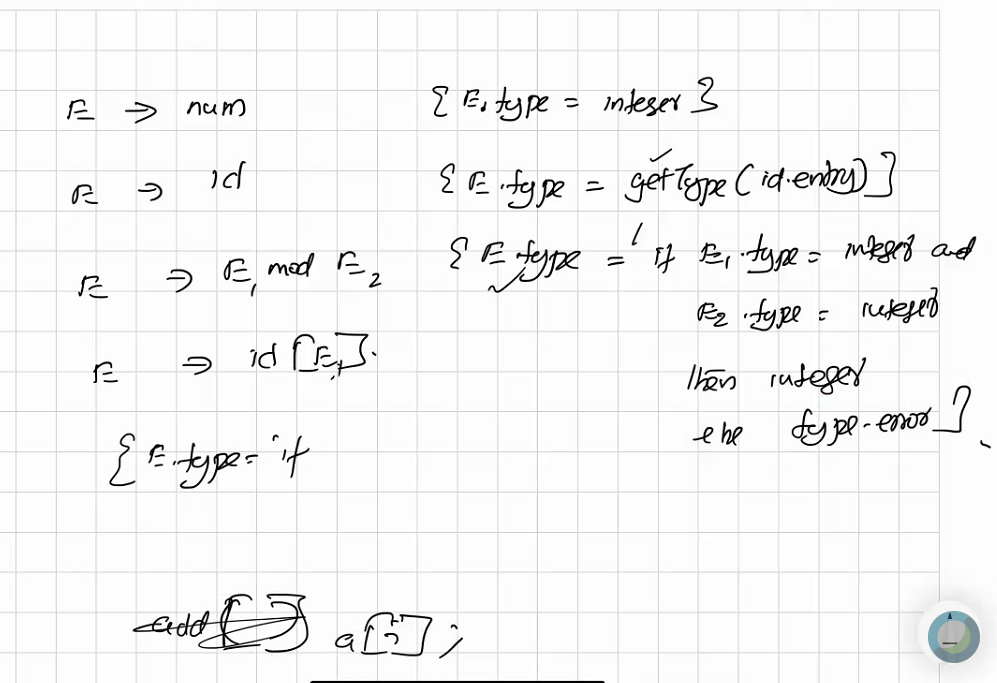 E → num { E.type = integer }
E ⇒ id { E.type = getType(id.entry) }
E ⇒ E1 mod E2 { E.type = if E1.type = integer and
E2.type = integer
then integer
else type-error }
E ⇒ id [E1].
{ E.type = if
add [ ] a[ ] ;